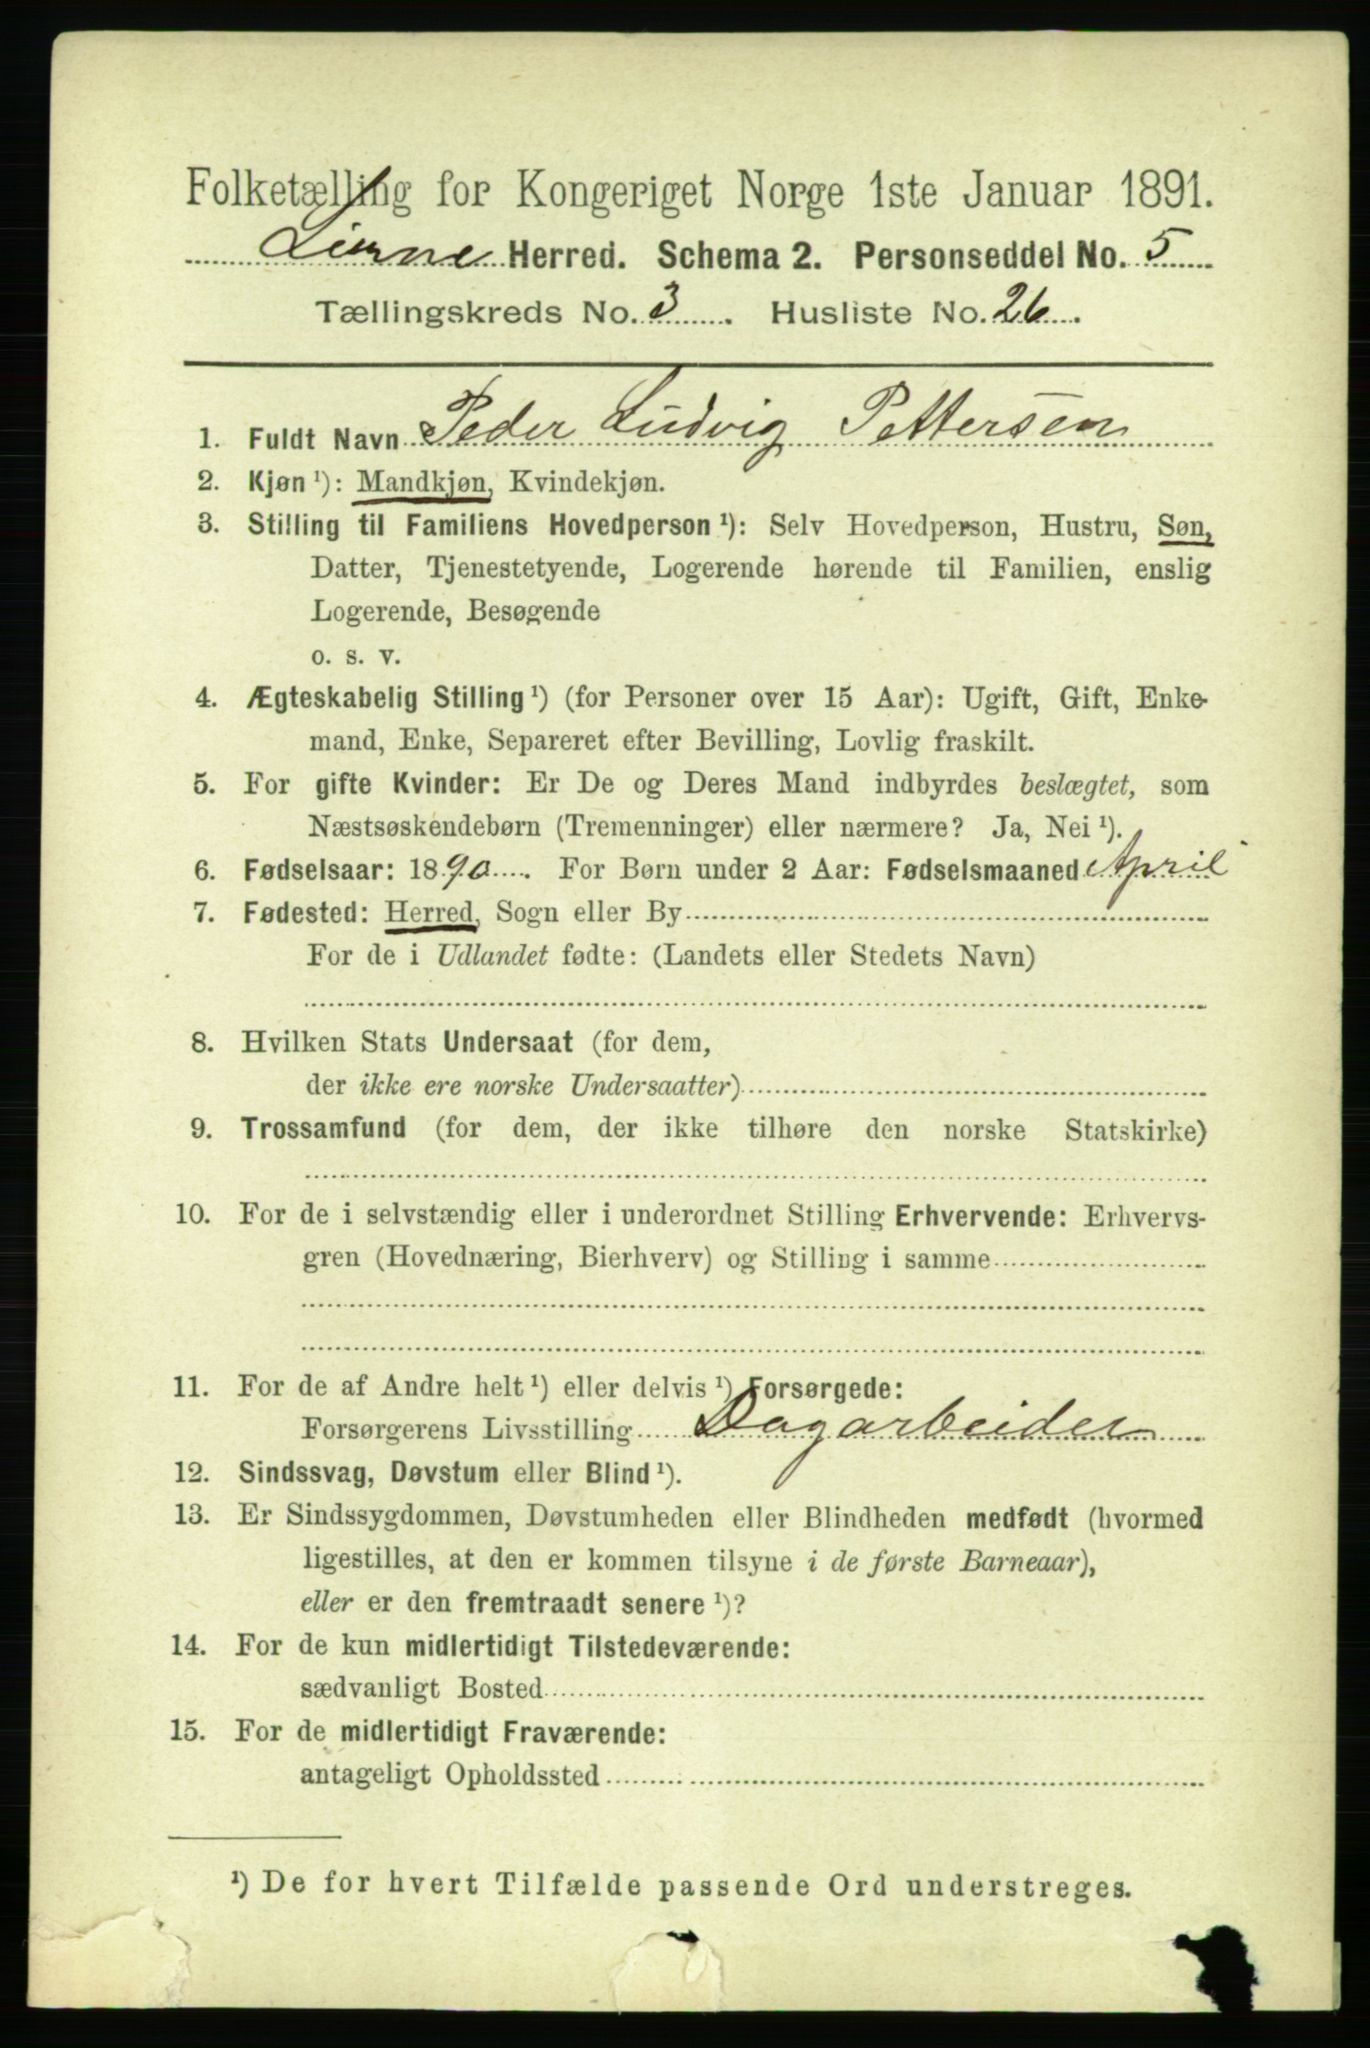 Folketælling for Kongeriget Norge 1ste Januar 1891.
Lierne Herred. Schema 2. Personseddel No. 5
Tællingskreds No. 3. Husliste No. 26.
1. Fuldt Navn Peder Ludvig Pettersen
2. Kjøn ¹): Mandkjøn, Kvindekjøn.
3. Stilling til Familiens Hovedperson ¹): Selv Hovedperson, Hustru, Søn,
Datter, Tjenestetyende, Logerende hørende til Familien, enslig
Logerende, Besøgende
o. s. v.
4. Ægteskabelig Stilling ¹) (for Personer over 15 Aar): Ugift, Gift, Enke-
mand, Enke, Separeret efter Bevilling, Lovlig fraskilt.
5. For gifte Kvinder: Er De og Deres Mand indbyrdes beslægtet, som
Næstsøskendebørn (Tremenninger) eller nærmere? Ja, Nei ¹).
6. Fødselsaar: 1890. For Børn under 2 Aar: Fødselsmaaned April
7. Fødested: Herred, Sogn eller By
For de i Udlandet fødte: (Landets eller Stedets Navn)
8. Hvilken Stats Undersaat (for dem,
der ikke ere norske Undersaatter)
9. Trossamfund (for dem, der ikke tilhøre den norske Statskirke)
10. For de i selvstændig eller i underordnet Stilling Erhvervende: Erhvervs-
gren (Hovednæring, Bierhverv) og Stilling i samme
11. For de af Andre helt ¹) eller delvis ¹) Forsørgede:
Forsørgerens Livsstilling Dagarbeider
12. Sindssvag, Døvstum eller Blind ¹).
13. Er Sindssygdommen, Døvstumheden eller Blindheden medfødt (hvormed
ligestilles, at den er kommen tilsyne i de første Barneaar),
eller er den fremtraadt senere ¹)?
14. For de kun midlertidigt Tilstedeværende:
sædvanligt Bosted
15. For de midlertidigt Fraværende:
antageligt Opholdssted
¹) De for hvert Tilfælde passende Ord understreges.